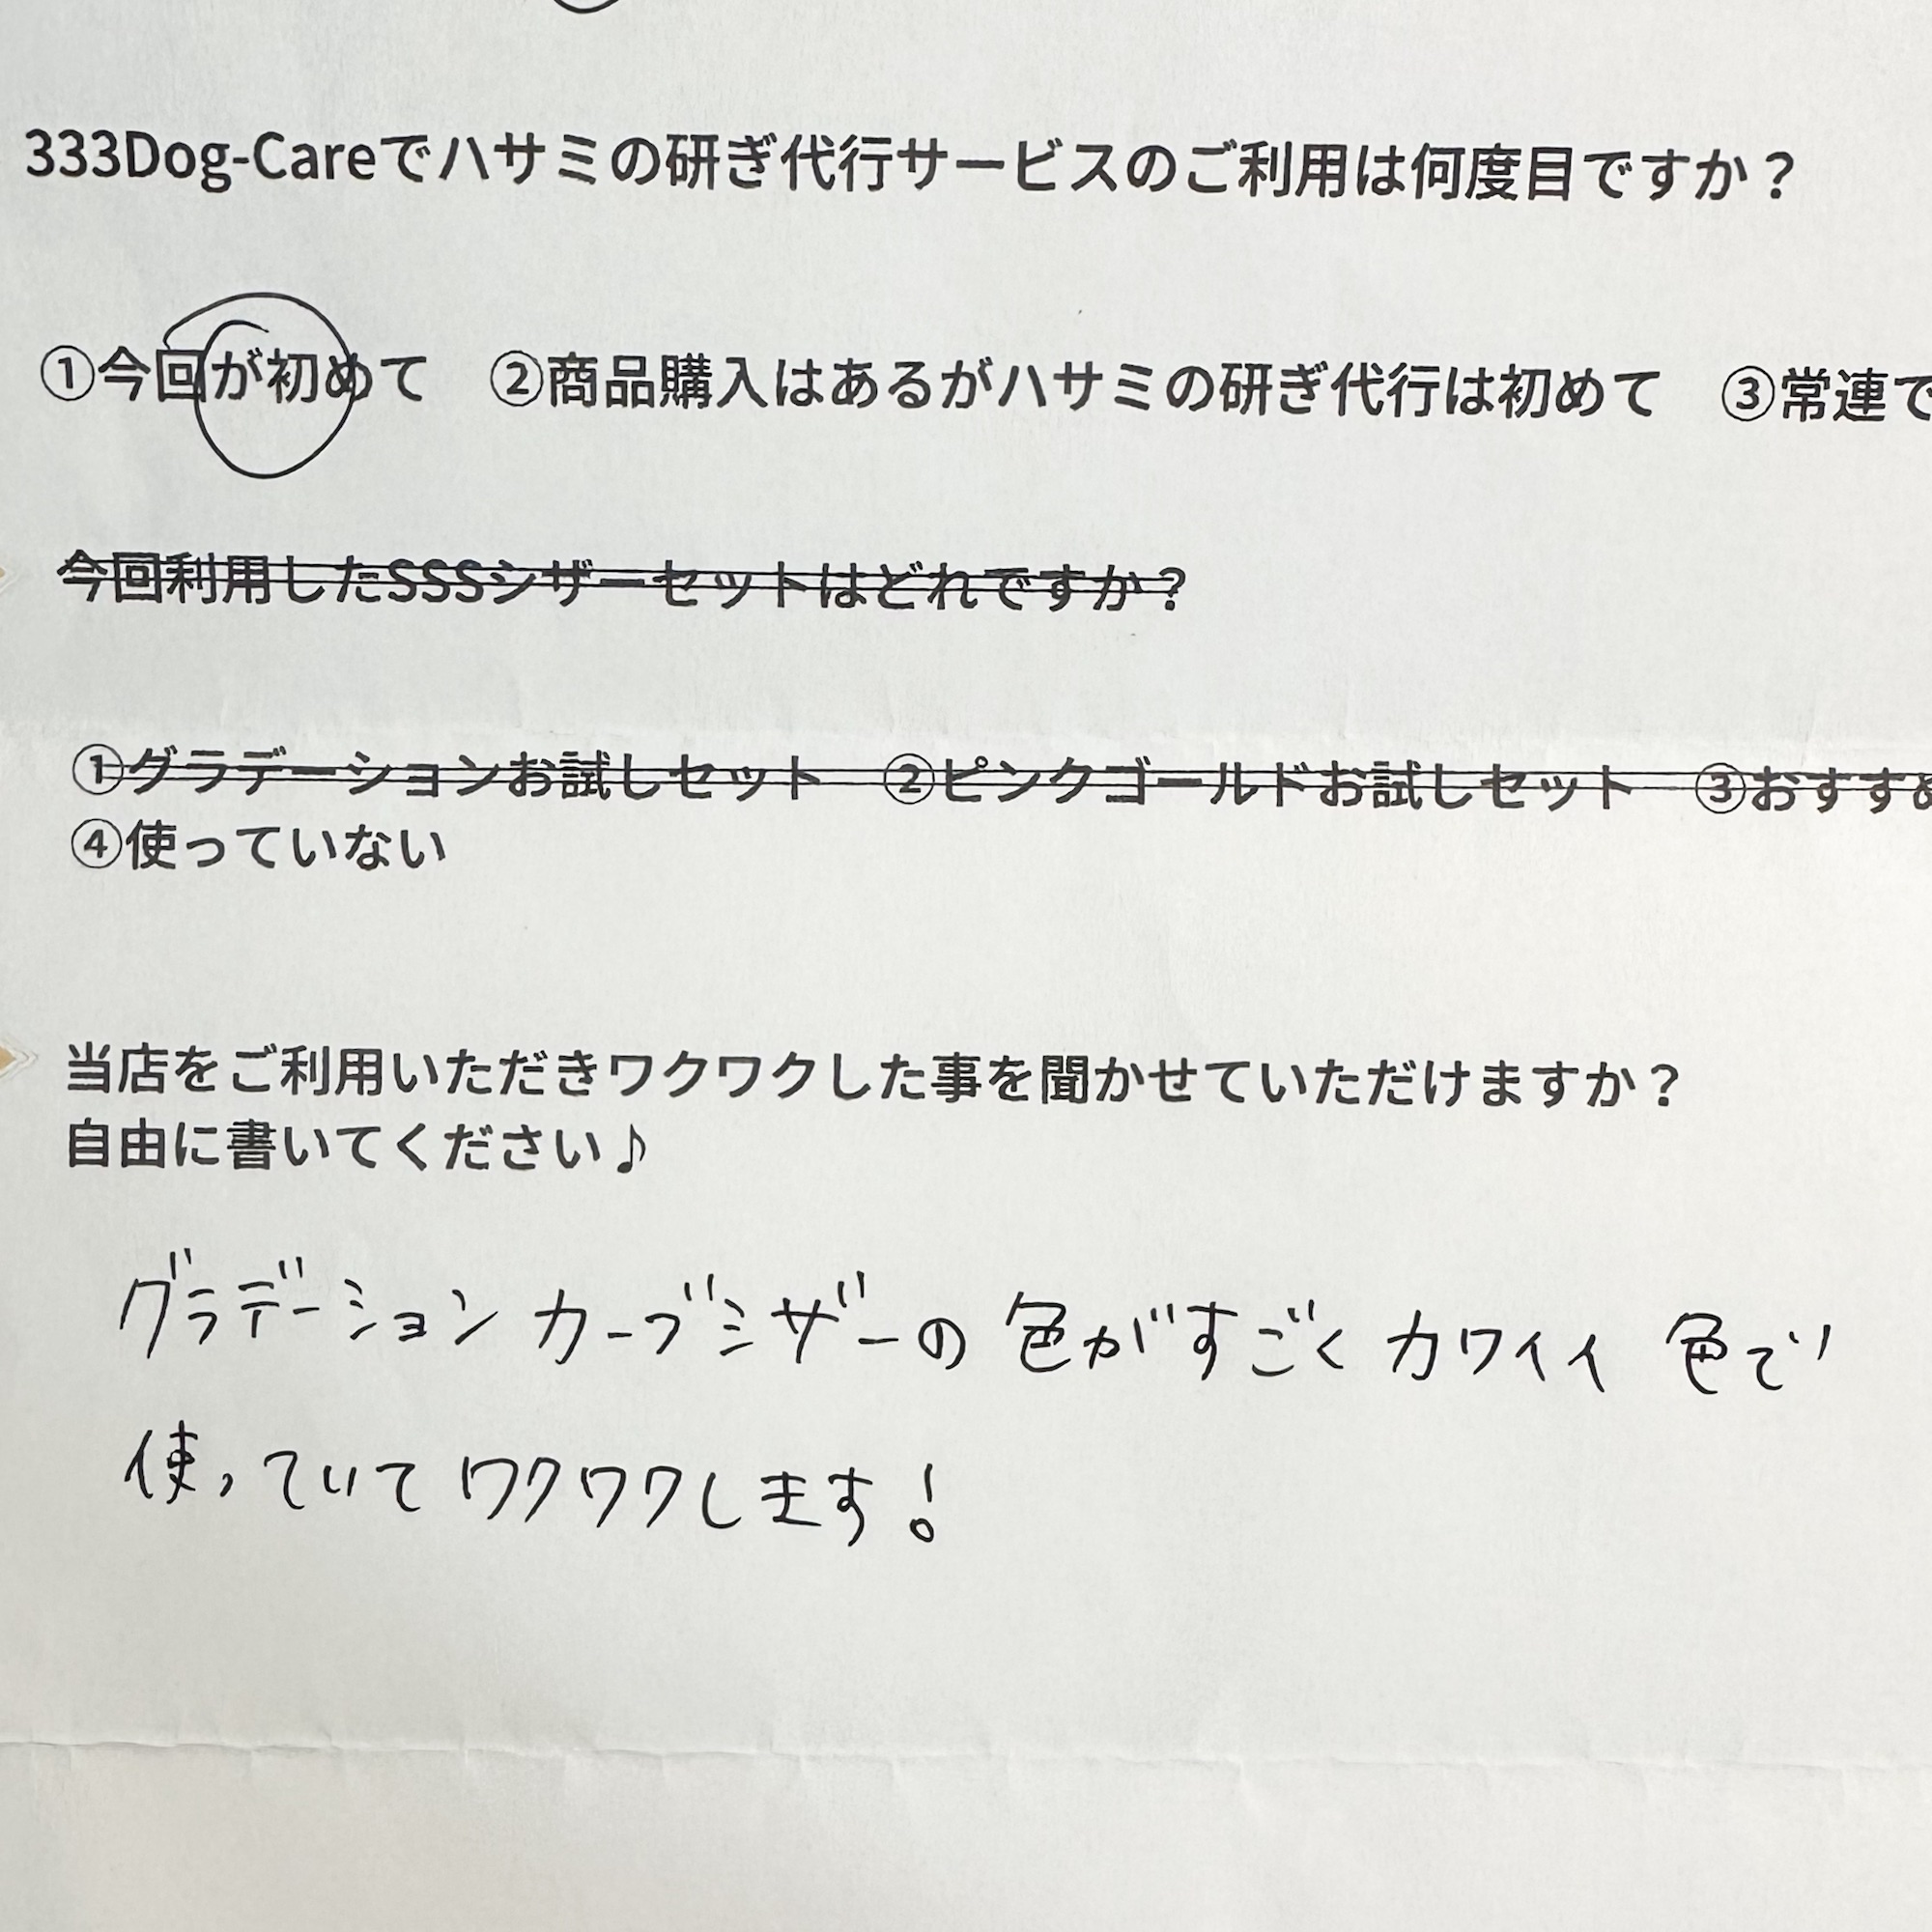 333Dog-Careでハサミの研ぎ代行サービスのご利用は何度目ですか？
①今回が初めて　②商品購入はあるがハサミの研ぎ代行は初めて　③常連で
今回利用したSSSシザーセットはどれですか？
①グラデーションお試しセット　②ピンクゴールドお試しセット　③おすすめ
④使っていない
当店をご利用いただきワクワクした事を聞かせていただけますか？
自由に書いてください♪
グラデーション カーブシザーの 色がすごく カワイイ 色で
使っていて ワクワクします！